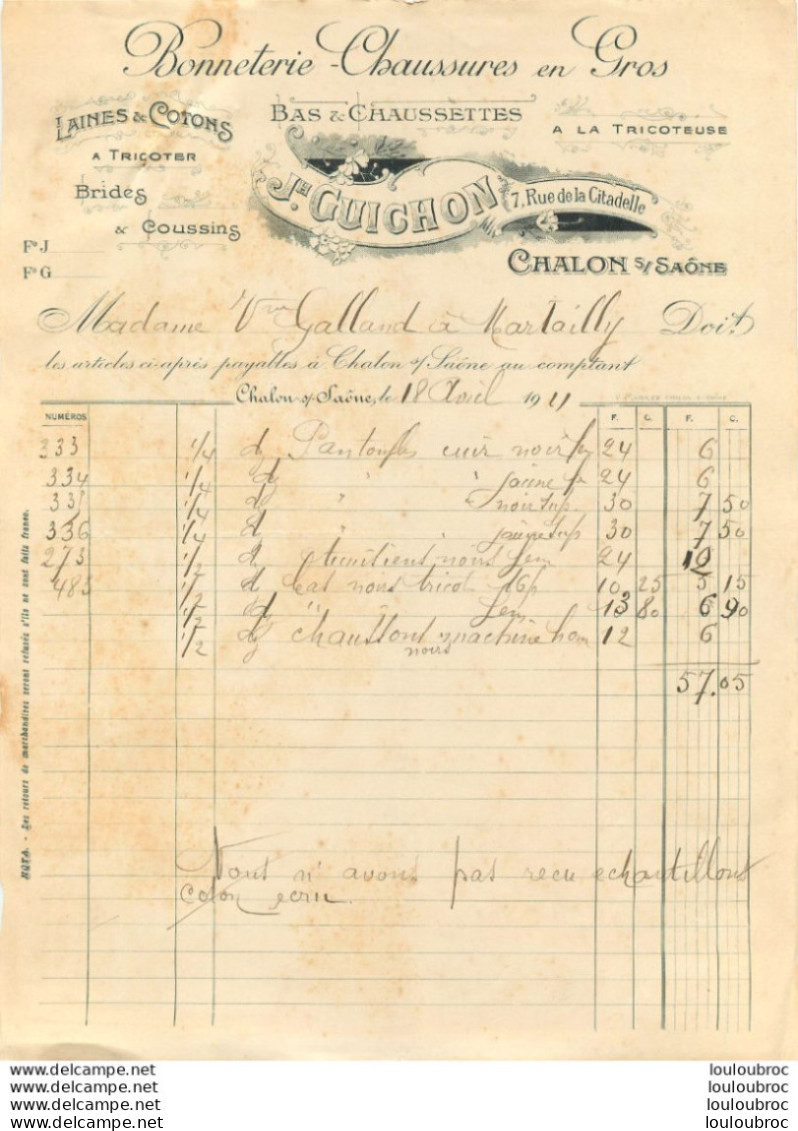 Bonneterie - Chaussures en Gros
LAINES & COTONS
A TRICOTER
BAS & CHAUSSETTES
A LA TRICOTEUSE
Brides
& Coussins
JH. GUICHON
7, Rue de la Citadelle
CHALON S/ SAÔNE
Fo J
Fo G
Madame Vve Galland à Martailly Doit
les articles ci-après payables à Chalon s/ Saône au comptant
Chalon s/ Saône, le 18 Avril 1921
NUMÉROS F. C. F. C.
333 1/4 d Pantoufles cuir noir 24 6
334 1/4 d " " jaune 24 6
335 1/4 d " noir sup 30 7 50
336 1/4 d " jaune sup 30 7 50
273 1/2 d noirs fem 24 10
485 1/2 d bas noirs tricot 16p 10 25 5 15
1/2 d " " fem 13 80 6 90
1/2 d chaussons machine hom 12 6
noirs
57.05
NOTA. - Les retours de marchandises seront refusés s'ils ne sont faits franco.
Nous n'avons pas recu echantillons
coton ecru.
louloubroc
louloubroc
louloubroc
louloubroc